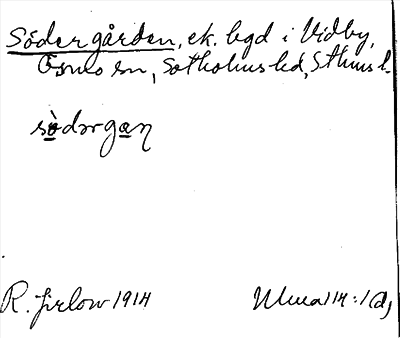 Södergården, ek. legd i Vidby,
Ösmo sn, Sotholms hd, Sthms l.
södərgan
R. Jirlow 1914
Ulma 114:1(d)